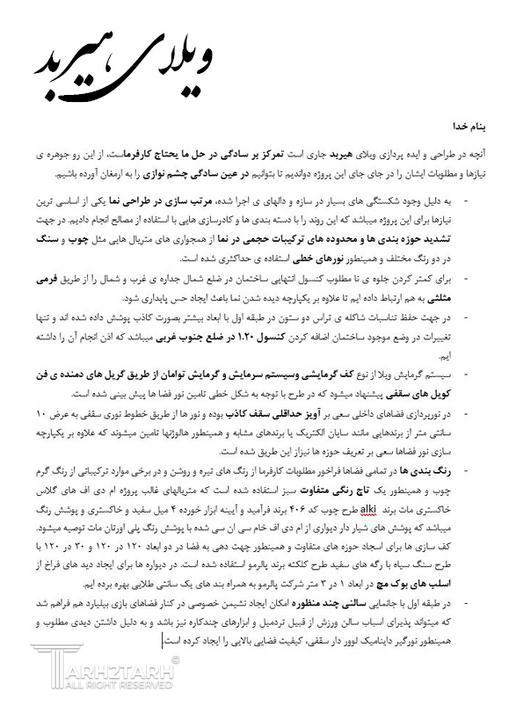 ویلای هیربد
بنام خدا
آنچه در طراحی و ایده پردازی ویلای هیربد جاری است تمرکز بر سادگی در حل ما یحتاج کارفرماست، از این رو جوهره ی
نیازها و مطلوبات ایشان را در جای جای این پروژه دواندیم تا بتوانیم در عین سادگی چشم نوازی را به ارمغان آورده باشیم.
- به دلیل وجود شکستگی های بسیار در سازه و دالهای ی اجرا شده، مرتب سازی در طراحی نما یکی از اساسی ترین
نیازها برای این پروژه میباشد که این روند را با دسته بندی ها و کادرسازی هایی با استفاده از مصالح انجام دادیم. در جهت
تشدید حوزه بندی ها و محدوده های ترکیبات حجمی در نما از همجواری های متریال هایی مثل چوب و سنگ
در دو رنگ مختلف و همینطور نورهای خطی استفاده ی حداکثری شده است.
- برای کمتر کردن جلوه ی تا مطلوب کنسول انتهایی ساختمان در ضلع شمال جداره ی غرب و شمال را از طریق فرمی
مثلثی به هم ارتباط داده ایم تا علاوه بر یکپارچه دیده شدن نما باعث ایجاد حس پایداری شود.
- در جهت حفظ تناسبات شاکله ی تراس دو ستون در طبقه اول با ابعاد بیشتر بصورت کاذب پوشش داده شده اند و تنها
تغییرات در وضع موجود ساختمان اضافه کردن کنسول ۱.۲۰ در ضلع جنوب غربی میباشد که اذن انجام آن را داشته
ایم.
- سیستم گرمایش ویلا از نوع کف گرمایشی وسیستم سرمایش و گرمایش توامان از طریق گریل های دمنده ی فن
کویل های سقفی پیشنهاد میشود که در طرح با توجه به شکل خطی تامین نور فضا ها پیش بینی شده است.
- در نورپردازی فضاهای داخلی سعی بر آویز حداقلی سقف کاذب بوده و نور ها از طریق خطوط نوری سقفی به عرض ۱۰
سانتی متر از برندهایی مانند سایان الکتریک یا برندهای مشابه و همینطور هالوژنها تامین میشوند که علاوه بر یکپارچه
سازی نور فضاها سعی بر تعریف حوزه ها نیزاز این طریق شده است.
- رنگ بندی ها در تمامی فضاها فراخور مطلوبات کارفرما از رنگ های تیره و روشن و در برخی موارد ترکیباتی از رنگ گرم
چوب و همینطور یک تاچ رنگی متفاوت سبز استفاده شده است که متریالهای غالب پروژه ام دی اف های گلاس
خاکستری مات برند alki طرح چوب کد ۴۰۶ برند فرآمید و آیینه ابزار خورده ۴ میل سفید و خاکستری و پوشش رنگ
میباشد که پوشش های شیار دار دیواری از ام دی اف خام سی ان سی شده با پوشش رنگ پلی اورتان مات توصیه میشود.
کف سازی ها برای اسجاد حوزه های متفاوت و همینطور جهت دهی به فضا در دو ابعاد ۱۲۰ در ۱۲۰ و ۳۰ در ۱۲۰ با
طرح سنگ سیاه با رگه های سفید طرح کلکته برند پالرمو استفاده شده است. در دیواره ها برای ایجاد دید های فراخ از
اسلب های بوک مچ در ابعاد ۱ در ۳ متر شرکت پالرمو به همراه بند های یک سانتی طلایی بهره برده ایم.
- در طبقه اول با جانمایی سالنی چند منظوره امکان ایجاد نشیمن خصوصی در کنار فضاهای بازی بیلیارد هم فراهم شد
که میتواند پذیرای اسباب سالن ورزش از قبیل تردمیل و ابزارهای چندکاره نیز باشد و به دلیل داشتن دیدی مطلوب و
همینطور نورگیر داینامیک لوور دار سقفی، کیفیت فضایی بالایی را ایجاد کرده است.
TARH2TARH©
ALL RIGHT RESERVED